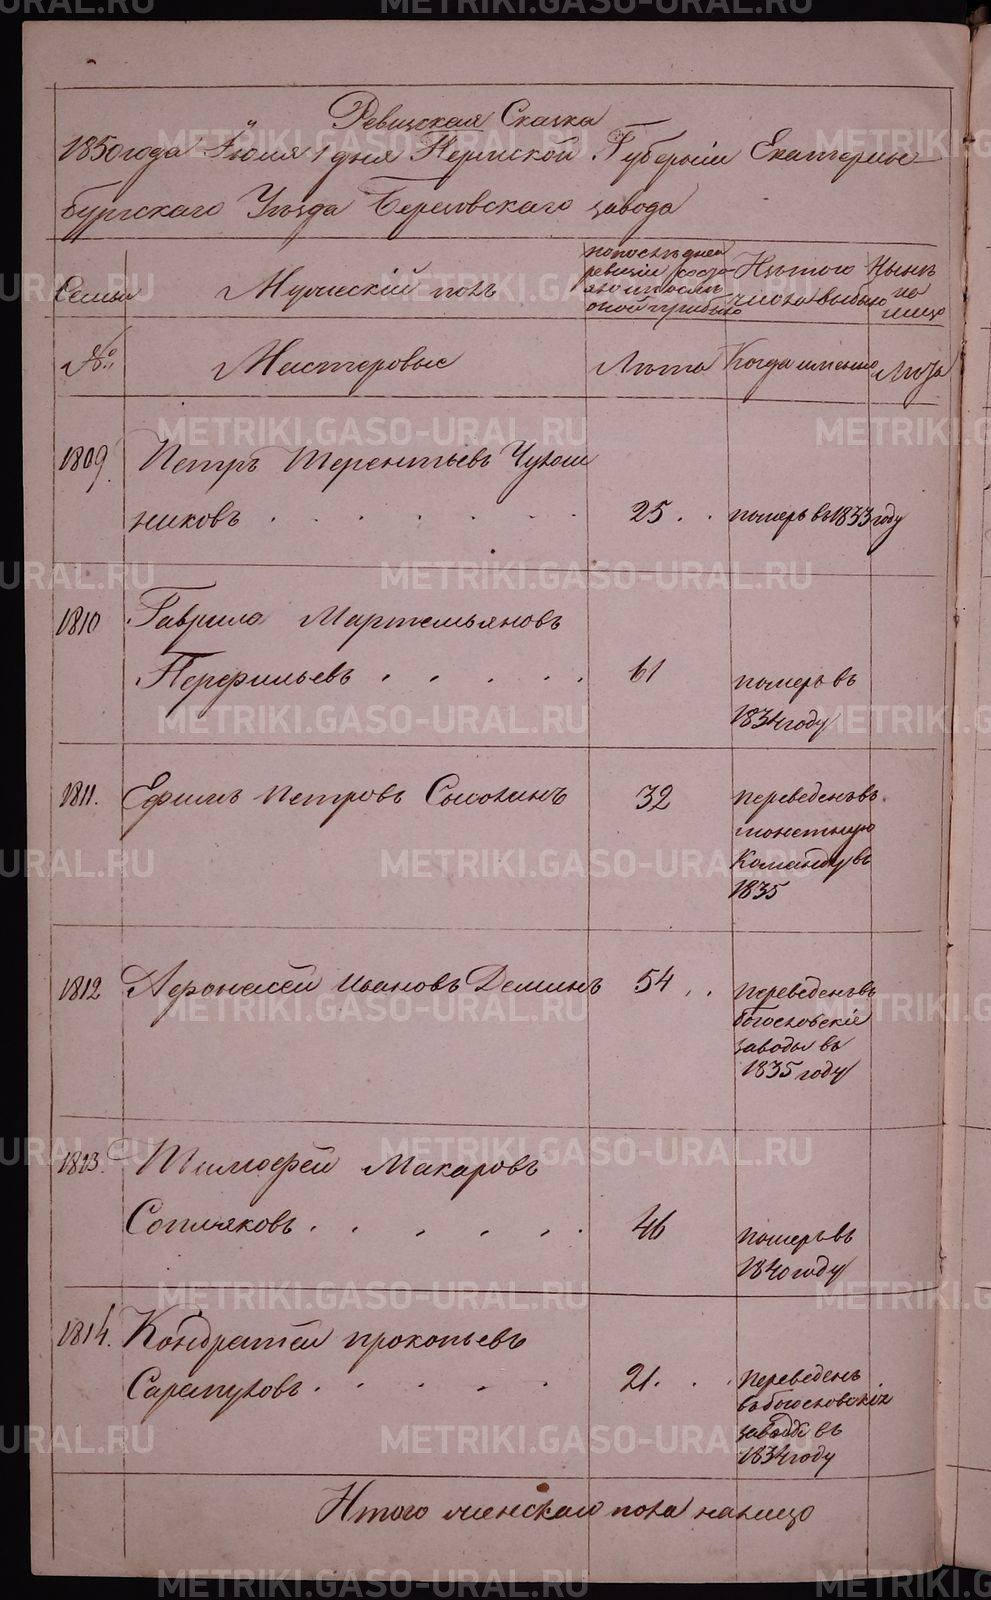 Ревизская Сказка
1850 года Июля 1 дня Пермской Губернии Екатерин
бургскаго Уезда Березовскаго завода
Семьи
Мужескій полъ
по последней
ревизіи состо
яло и после
оной прибыло
Изъ того
числа выбыло
Ныне
на
лицо
№:
Мастеровые
Лета
Когда именно
Лета
1809.
Петръ Терентьевъ Чухлом
никовъ . . . . . . .
25 . .
померъ въ 1833 году
1810
Гаврила Мартемьяновъ
Перфильевъ . . . . .
61
померъ въ
1834 году
1811.
Ефимъ Петровъ
32
переведенъ въ
монетную
Команду въ
1835
1812
Афонасей Ивановъ Деминъ
54 . .
переведенъ въ
богословскіе
заводы въ
1835 году
1813.
Тимофей Макаровъ
Сопляковъ . . . . . .
46
померъ въ
1840 году
1814.
Кондратей прокопьевъ
Сарапуловъ . . . . .
21. . .
переведенъ
въ богословскіе
заводы въ
1834 году
Итого женскаго пола налицо
METRIKI.GASO-URAL.RU